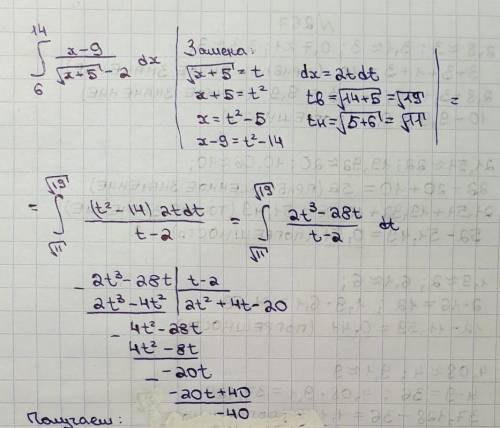 ∫₆¹⁴ (x-9)/(√(x+5) - 2) dx | Замена:
√(x+5) = t dx = 2t dt
x+5 = t² tв = √(14+5) = √19 =
x = t² - 5 tн = √(5+6) = √11
x-9 = t² - 14
= ∫_√11^√19 ((t²-14) 2t dt)/(t-2) = ∫_√11^√19 (2t³ - 28t)/(t-2) dt
- 2t³ - 28t | t-2
2t³ - 4t² | 2t² + 4t - 20
- 4t² - 28t
4t² - 8t
- -20t
-20t + 40
-40
Получаем: